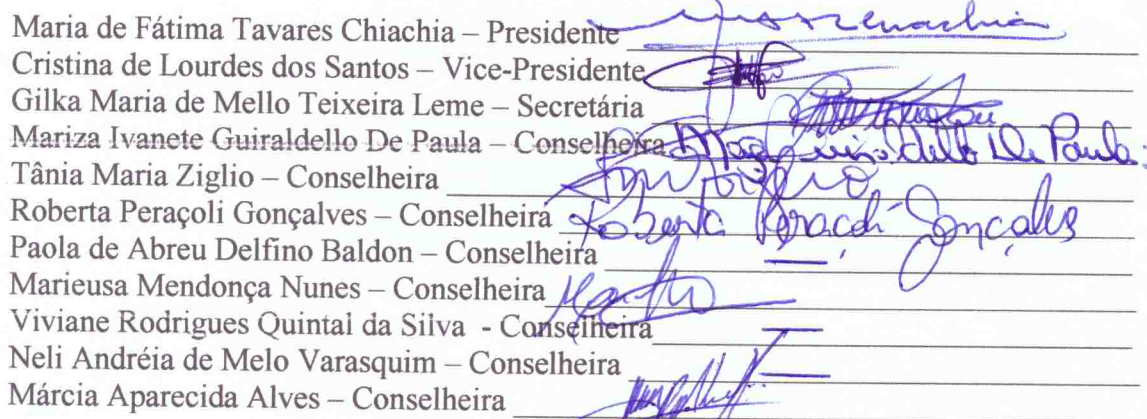 Maria de Fátima Tavares Chiachia – Presidente
Cristina de Lourdes dos Santos – Vice-Presidente
Gilka Maria de Mello Teixeira Leme – Secretária
Mariza Ivanete Guiraldello De Paula – Conselheira Guiraldello De Paula
Tânia Maria Ziglio – Conselheira
Roberta Peraçoli Gonçalves – Conselheira Roberta Peraçoli Gonçalves
Paola de Abreu Delfino Baldon – Conselheira
Marieusa Mendonça Nunes – Conselheira
Viviane Rodrigues Quintal da Silva - Conselheira
Neli Andréia de Melo Varasquim – Conselheira
Márcia Aparecida Alves – Conselheira